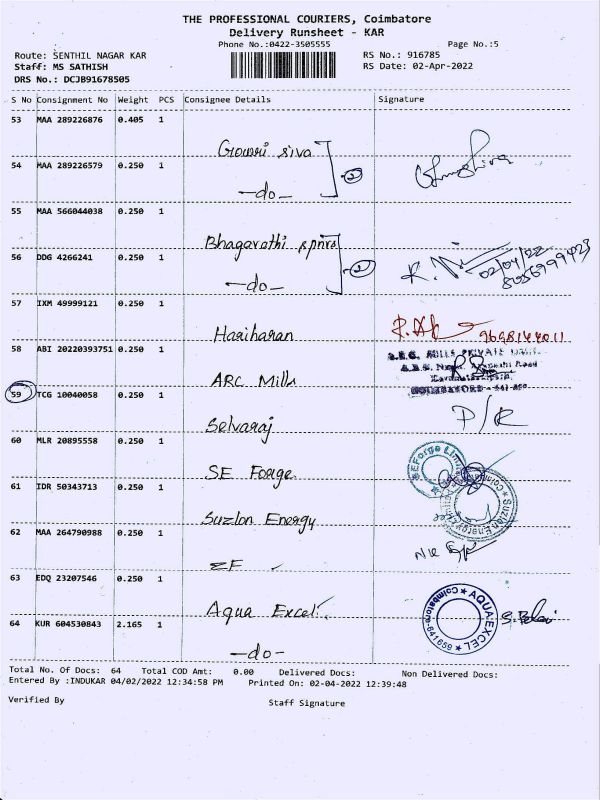 THE PROFESSIONAL COURIERS, Coimbatore
Delivery Runsheet - KAR
Phone No.:0422-3505555 Page No.:5
Route: SENTHIL NAGAR KAR RS No.: 916785
Staff: MS SATHISH RS Date: 02-Apr-2022
DRS No.: DCJB91678505
S No Consignment No Weight PCS Consignee Details Signature
53 MAA 289226876 0.405 1
Gowri siva
54 MAA 289226579 0.250 1
-do- 2
55 MAA 566044038 0.250 1
Bhagavathi
56 DDG 4266241 0.250 1
-do- 2 02/04/22
57 IXM 49999121 0.250 1
Hariharan 9698144011
58 ABI 20220393751 0.250 1
ARC Mills
59 TCG 10040058 0.250 1
Selvaraj D/R
60 MLR 20895558 0.250 1
SE Forge
61 IDR 50343713 0.250 1
Suzlon Energy
62 MAA 264790988 0.250 1
EF
63 EDQ 23207546 0.250 1
Aqua Excel AQUA EXCEL Coimbatore-641659
64 KUR 604530843 2.165 1
-do-
Total No. Of Docs: 64 Total COD Amt: 0.00 Delivered Docs: Non Delivered Docs:
Entered By :INDUKAR 04/02/2022 12:34:58 PM Printed On: 02-04-2022 12:39:48
Verified By Staff Signature